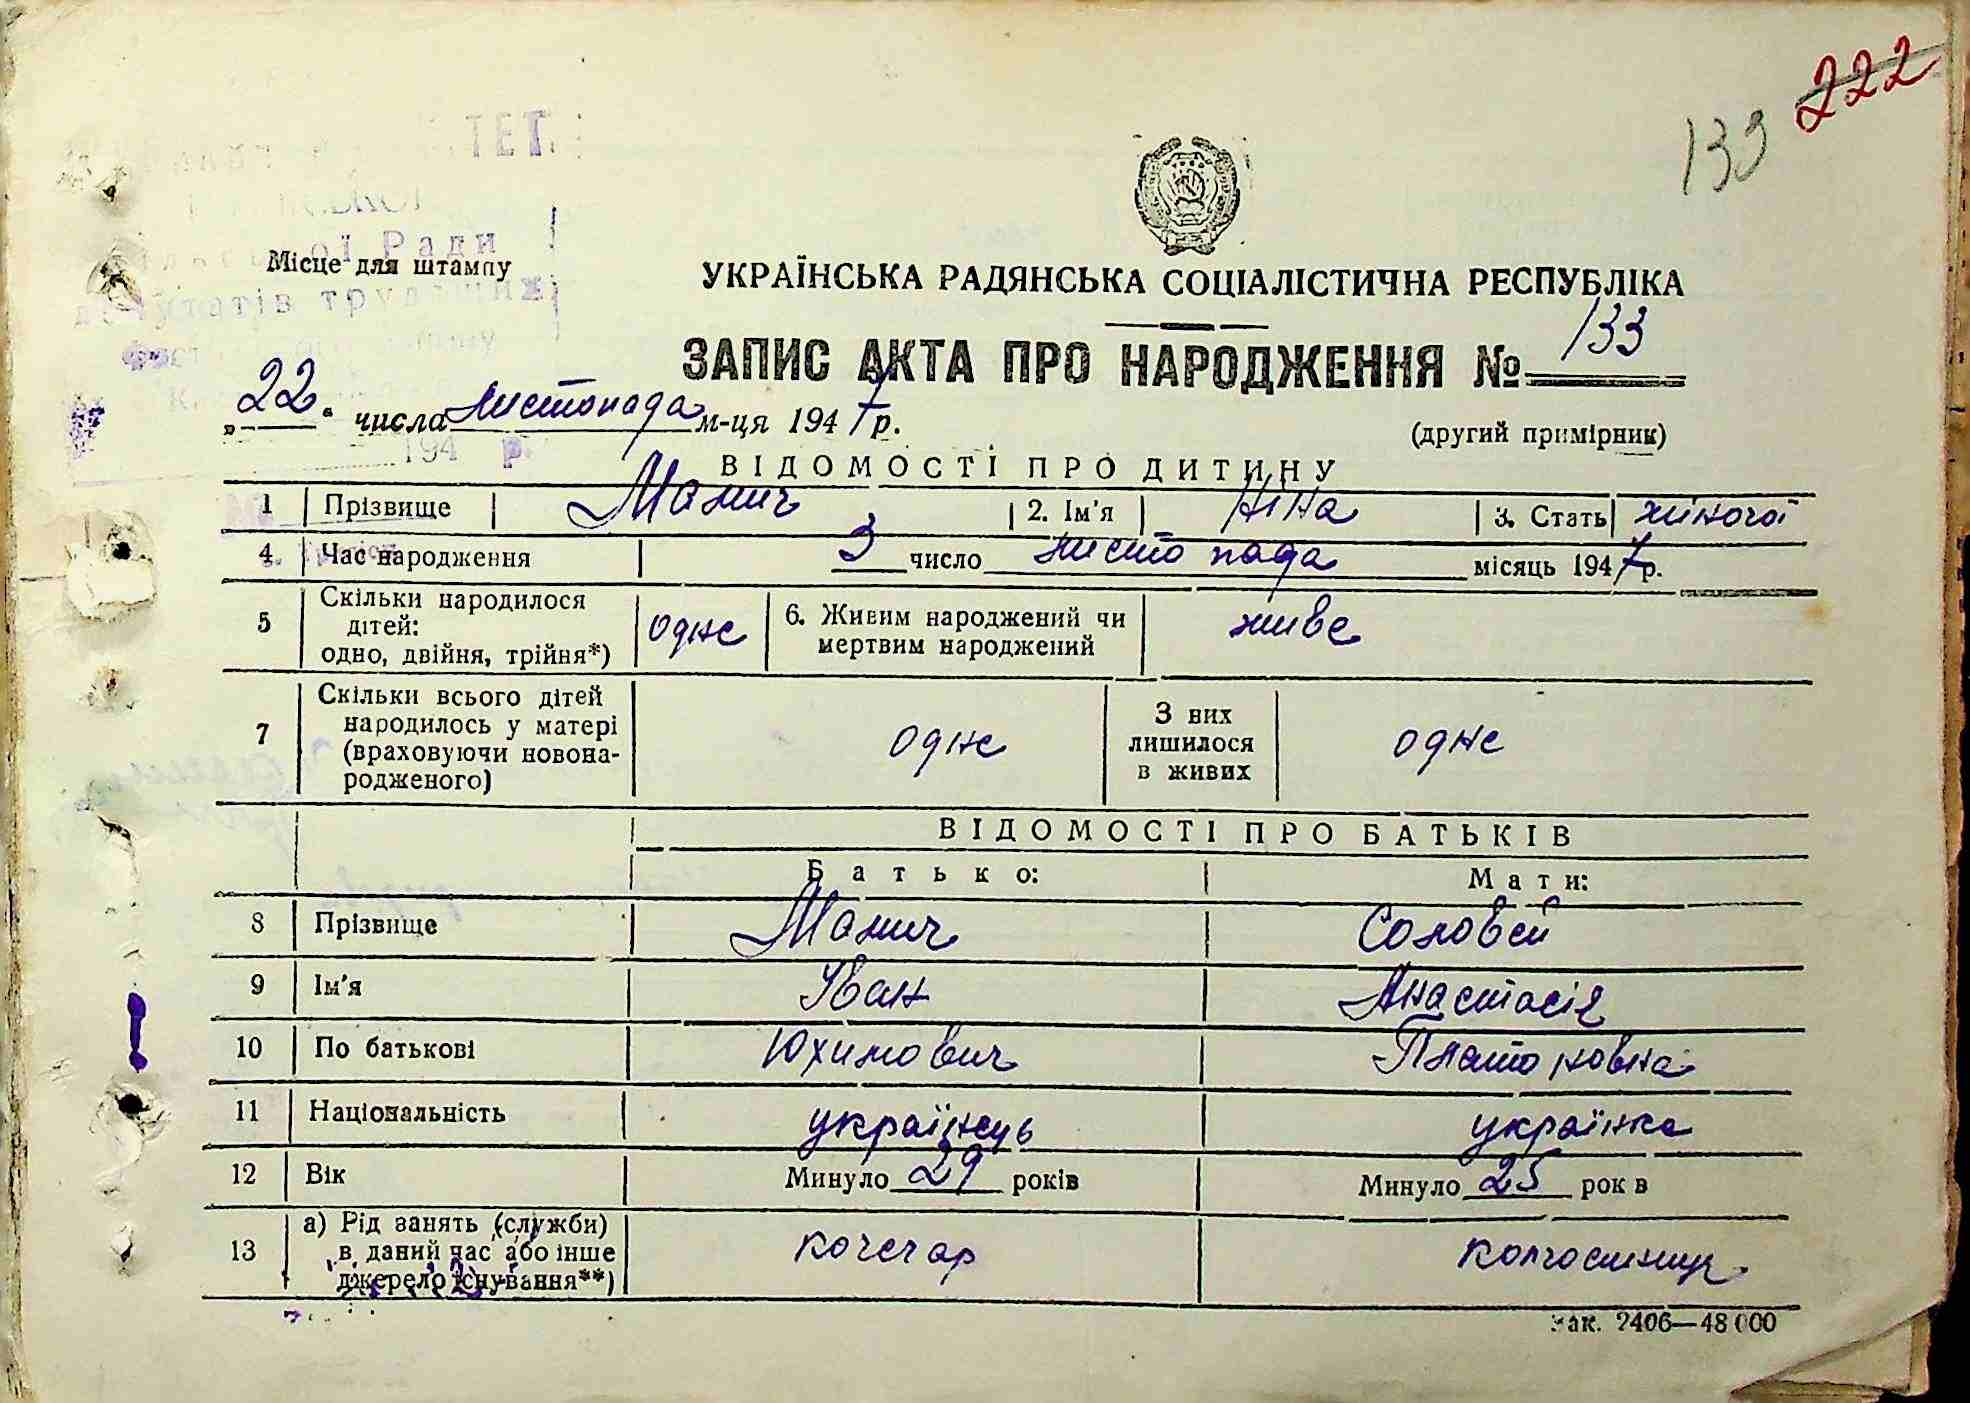 222
139
ТЕТ
ої Ради
депутатів трудящих
Місце для штампу
УКРАЇНСЬКА РАДЯНСЬКА СОЦІАЛІСТИЧНА РЕСПУБЛІКА
ЗАПИС АКТА ПРО НАРОДЖЕННЯ № 133
„22“ числа листопада м-ця 1947 р.
(другий примірник)
194 р.
ВІДОМОСТІ ПРО ДИТИНУ
1 Прізвище Манич 2. Ім'я Ніна 3. Стать жіночої
4. Час народження 3 число листопада місяць 1947 р.
5 Скільки народилося дітей: одно, двійня, трійня*) одне 6. Живим народжений чи мертвим народжений живе
7 Скільки всього дітей народилось у матері (враховуючи новонародженого) одне З них лишилося в живих одне
ВІДОМОСТІ ПРО БАТЬКІВ
Батько: Мати:
8 Прізвище Манич Соловей
9 Ім'я Іван Анастасія
10 По батькові Юхимович Платоновна
11 Національність українець українка
12 Вік Минуло 29 років Минуло 25 рок в
13 а) Рід занять (служби) в даний час або інше джерело існування**) кочегар колгоспниця
Зак. 2406—48 000